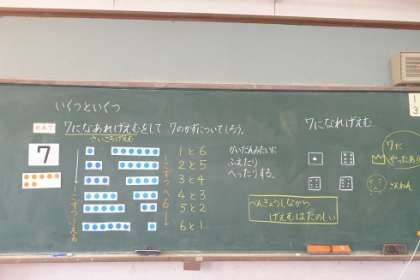 いくつといくつ
めあて
7になあれげえむをして 7のかずについてしろう。
さいころげえむ
7
1と6
2と5
3と4
4と3
5と2
6と1
1こずつふえる
かいだんみたいに
ふえたり
へったりする。
7になれげえむ
7に
やったあ
ざんねん
べんきょうしながら
げえむはたのしい